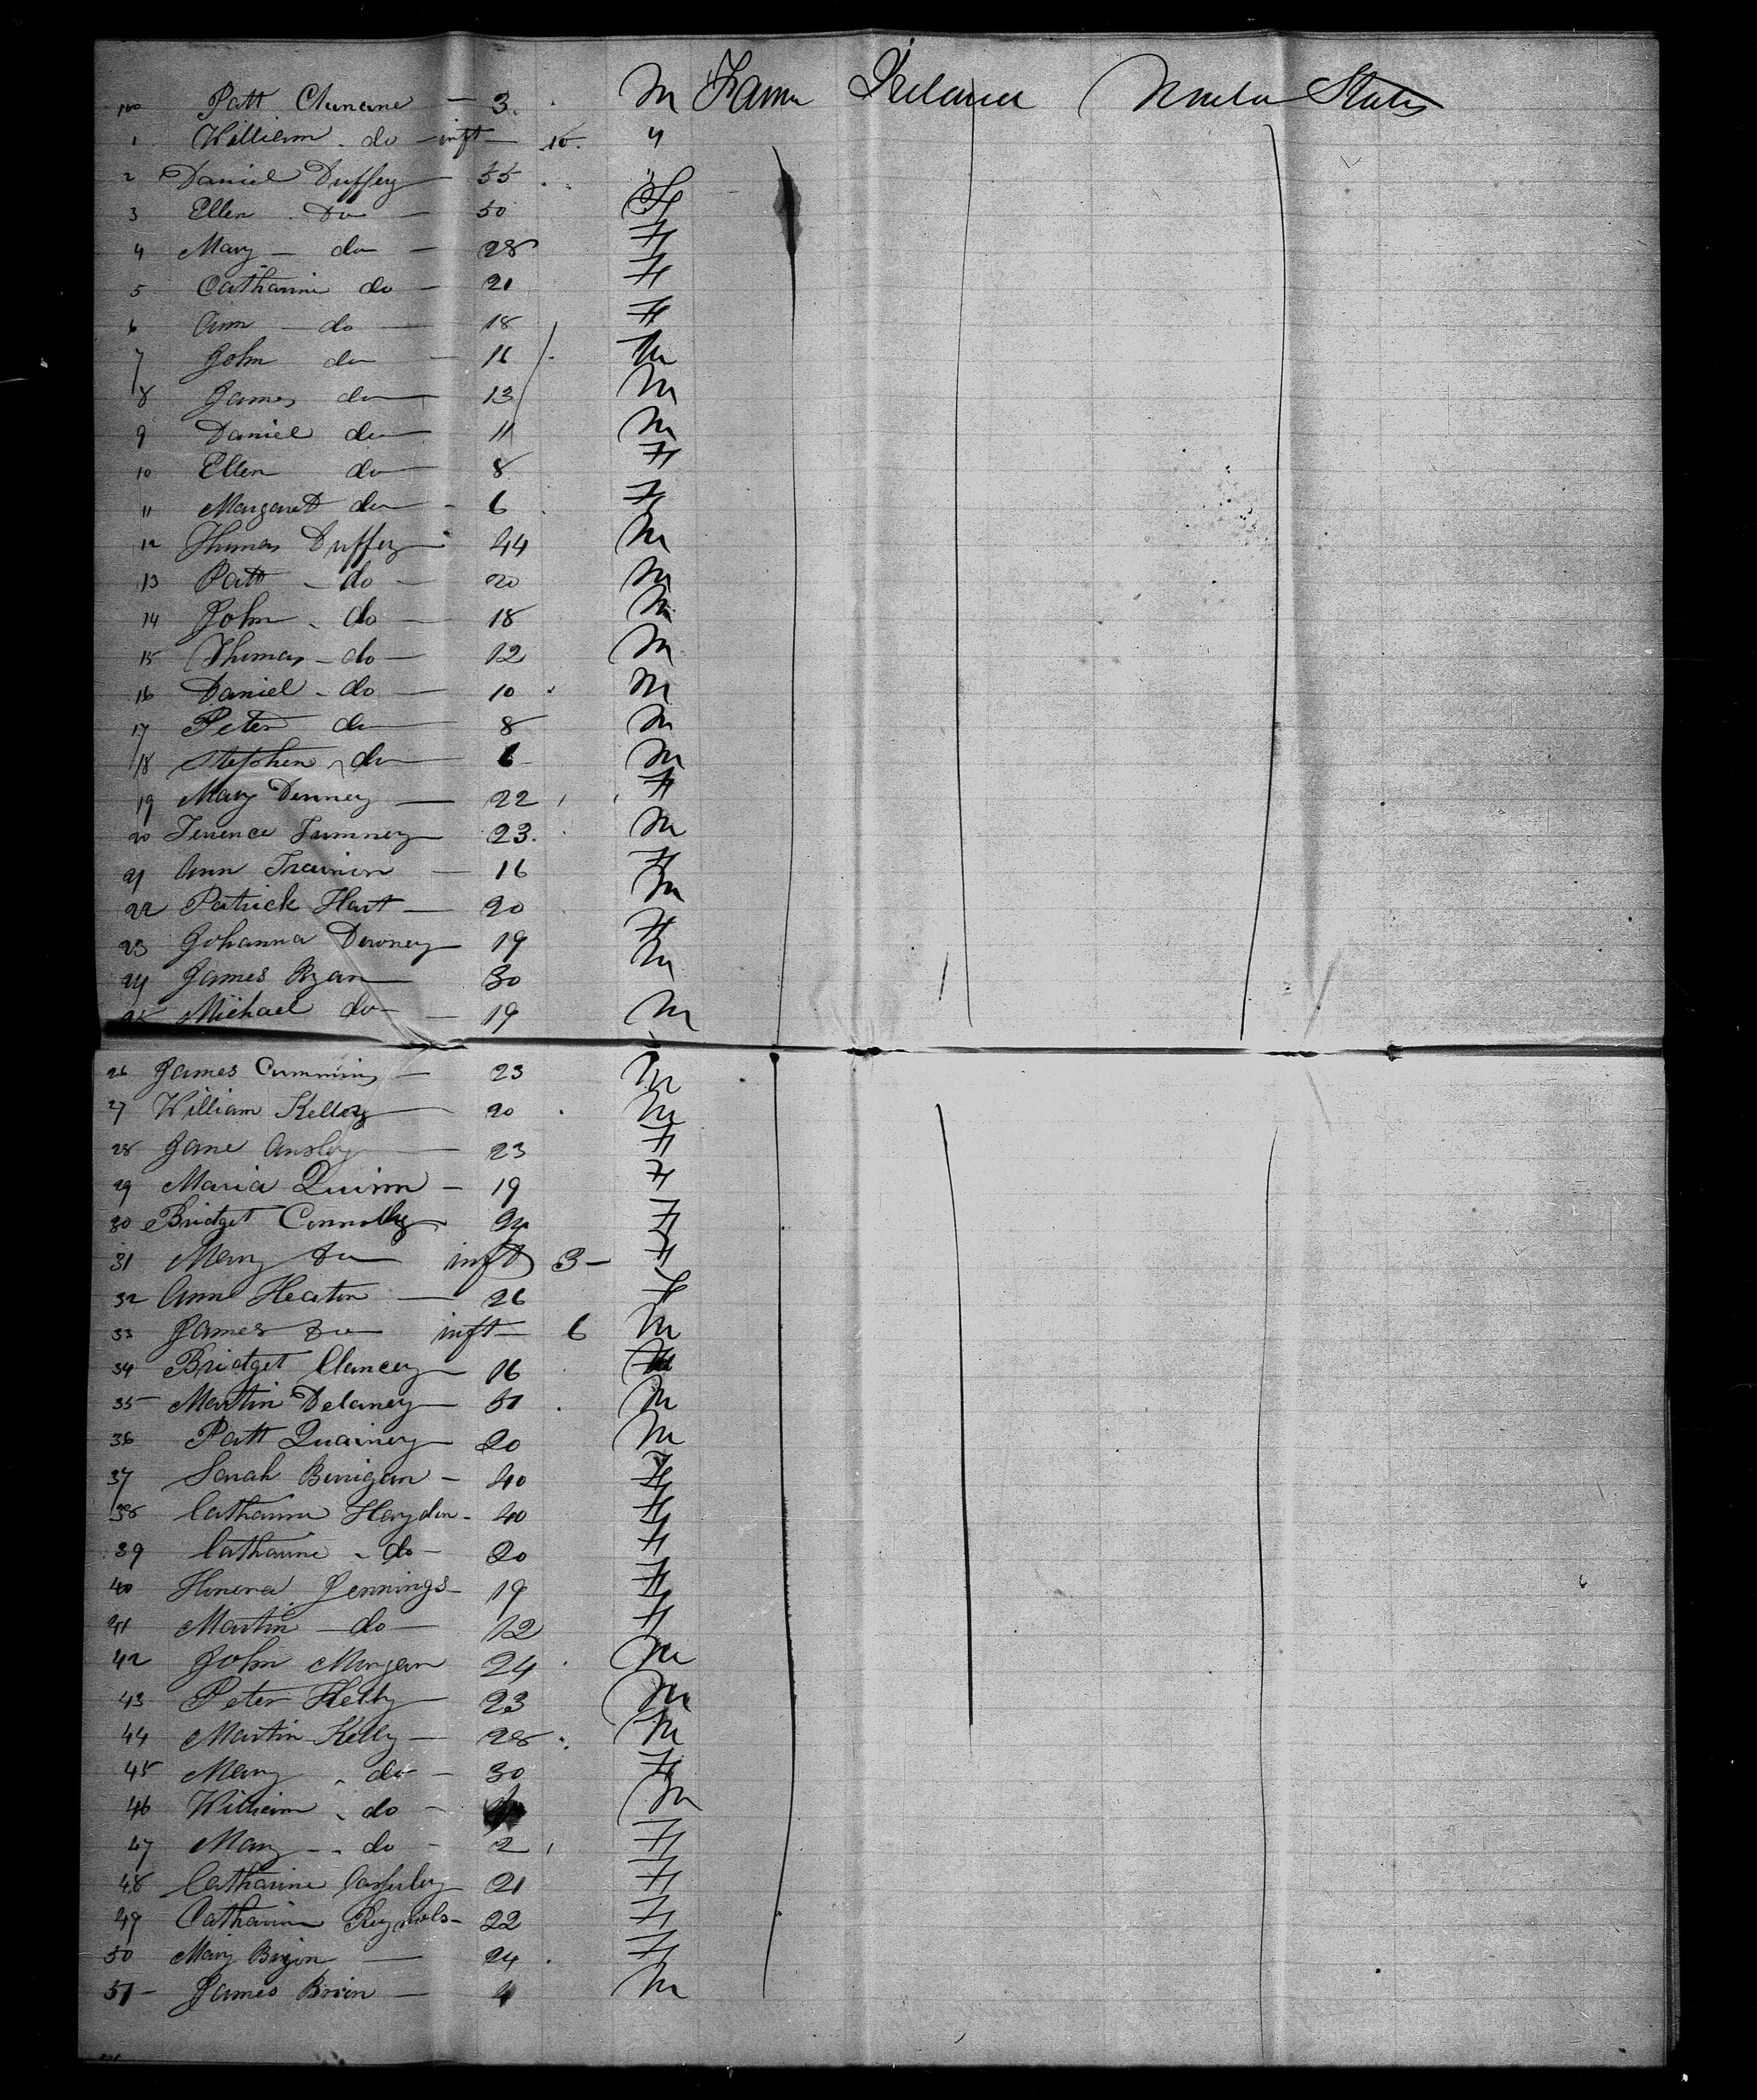 100 Patt Clunune - 3. M Farmer Ireland United States
1 William do inft 10. "
2 Daniel Duffey 55 "
3 Ellen Do - 50 F
4 Mary - do - 28 F
5 Catharine do - 21 F
6 Ann - do - 18 F
7 John do - 16 M
8 James do 13 M
9 Daniel do 11 M
10 Ellen do 8 F
11 Margarett do - 6 F
12 Thomas Duffey 44 M
13 Patt - do - 20 M
14 John - do - 18 M
15 Thomas - do - 12 M
16 Daniel - do - 10 M
17 Peter do 8 M
18 Stephen do 6 M
19 Mary Denney - 22 F
20 Terence 23. M
21 Ann Trainor - 16 F
22 Patrick Hart - 20 M
23 Johanna Downey 19 F
24 James Ryan 30 M
25 Michael do - 19 M
26 James Cummins - 23 M
27 William Kelley 20 M
28 Jane Ansley 23 F
29 Maria Quinn - 19 F
30 Bridget Connolly 24 F
31 Mary Do inft 3 - F
32 Ann Heaton - 26 F
33 James Do inft 6 M
34 Bridget Clancey 16
35 Martin Delaney 51 M
36 Patt Quainey 20 M
37 Sarah Berrigan - 40 F
38 Catharine Hayden - 40 F
39 Catharine - do - 20 F
40 Honora Jennings - 19 F
41 Martin - do - 12 F
42 John Morgan 24 M
43 Peter Kelly 23 M
44 Martin Kelly - 28 M
45 Mary - do - 30 F
46 William - do - M
47 Mary - do - 2 F
48 Catharine Casserley 21 F
49 Catharine Reynols - 22 F
50 Mary - 24 F
51 - James Brien - 4 M